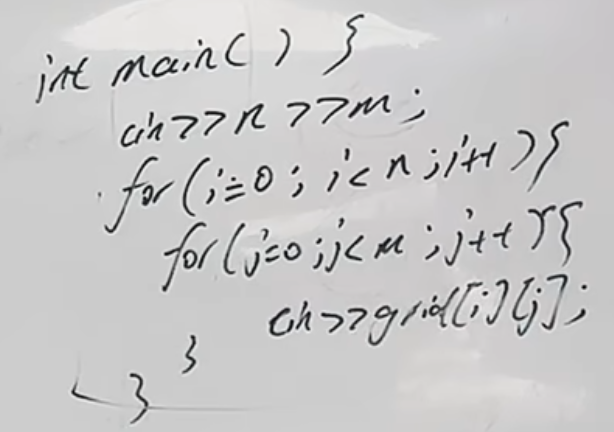 int main() {
cin>>n>>m;
for(i=0; i<n; i++){
for(j=0;j<m;j++){
cin>>grid[i][j];
}
}